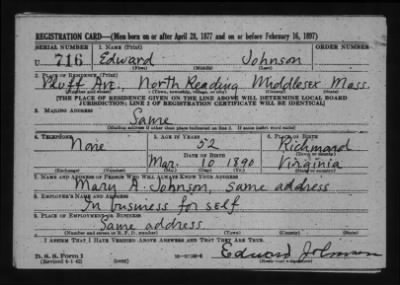 REGISTRATION CARD—(Men born on or after April 28, 1877 and on or before February 16, 1897)
SERIAL NUMBER 1. NAME (Print) ORDER NUMBER
U 716 Edward Johnson
(First) (Middle) (Last)
2. PLACE OF RESIDENCE (Print)
Ave., North Reading Middlesex Mass.
[THE PLACE OF RESIDENCE GIVEN ON THE LINE ABOVE WILL DETERMINE LOCAL BOARD
JURISDICTION; LINE 2 OF REGISTRATION CERTIFICATE WILL BE IDENTICAL]
3. MAILING ADDRESS
Same
[Mailing address if other than place indicated on line 2. If same insert word same]
4. TELEPHONE 5. AGE IN YEARS 6. PLACE OF BIRTH
None 52 Richmond
DATE OF BIRTH (Town or county)
Mar. 10 1890 Virginia
(Exchange) (Number) (Mo.) (Day) (Yr.) (State or country)
7. NAME AND ADDRESS OF PERSON WHO WILL ALWAYS KNOW YOUR ADDRESS
Mary A. Johnson, same address
8. EMPLOYER'S NAME AND ADDRESS
In business for self
9. PLACE OF EMPLOYMENT OR BUSINESS
Same address
(Number and street or R. F. D. number) (Town) (County) (State)
I AFFIRM THAT I HAVE VERIFIED ABOVE ANSWERS AND THAT THEY ARE TRUE.
D. S. S. Form 1 Edward Johnson
(Revised 4-1-42) (Registrant's signature)